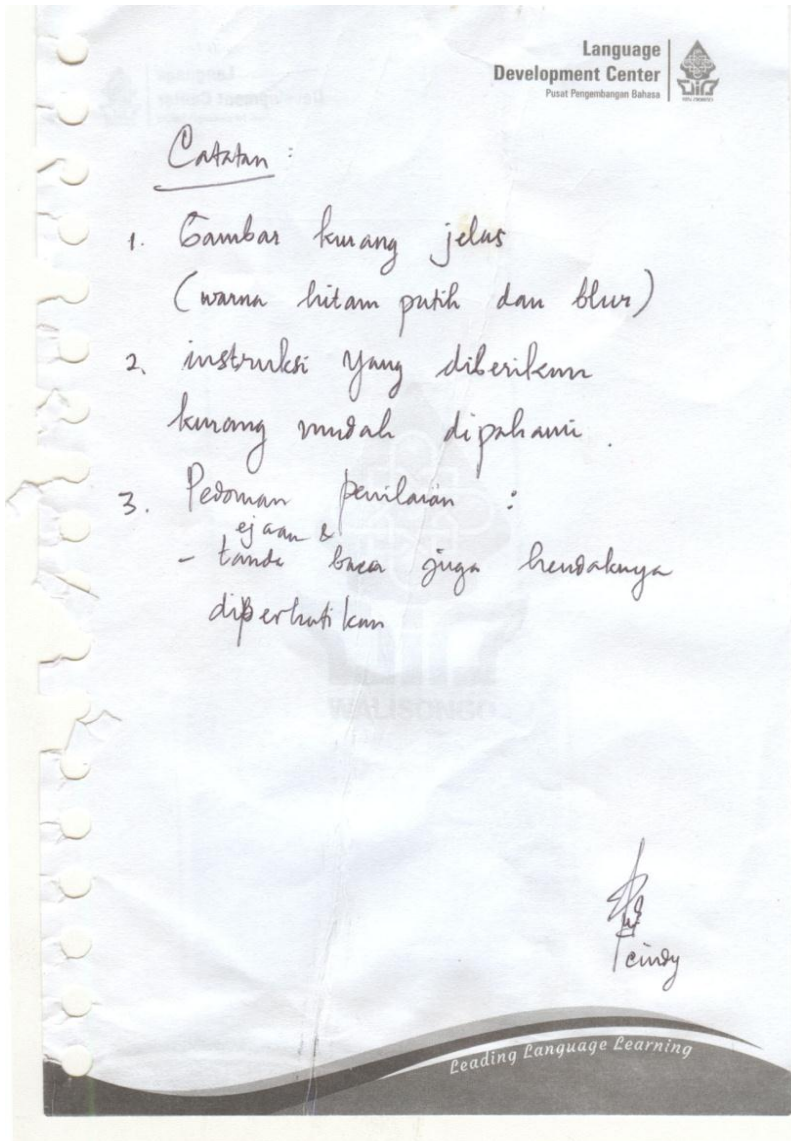 Language
Development Center
Pusat Pengembangan Bahasa
WALISONGO
Catatan :
1. Gambar kurang jelas
(warna hitam putih dan blur)
2. instruksi yang diberikan
kurang mudah dipahami.
3. Pedoman penilaian :
ejaan &
- tanda baca juga hendaknya
diperhatikan
WALISONGO
cindy
Leading Language Learning